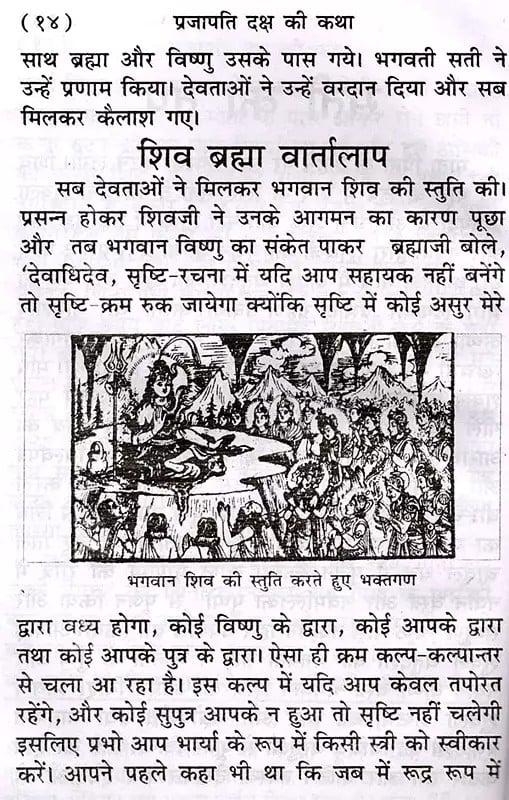 (१४) प्रजापति दक्ष की कथा
साथ ब्रह्मा और विष्णु उसके पास गये। भगवती सती ने
उन्हें प्रणाम किया। देवताओं ने उन्हें वरदान दिया और सब
मिलकर कैलाश गए।
शिव ब्रह्मा वार्तालाप
सब देवताओं ने मिलकर भगवान शिव की स्तुति की।
प्रसन्न होकर शिवजी ने उनके आगमन का कारण पूछा
और तब भगवान विष्णु का संकेत पाकर ब्रह्माजी बोले,
‘देवाधिदेव, सृष्टि-रचना में यदि आप सहायक नहीं बनेंगे
तो सृष्टि-क्रम रुक जायेगा क्योंकि सृष्टि में कोई असुर मेरे
भगवान शिव की स्तुति करते हुए भक्तगण
द्वारा वध्य होगा, कोई विष्णु के द्वारा, कोई आपके द्वारा
तथा कोई आपके पुत्र के द्वारा। ऐसा ही क्रम कल्प-कल्पान्तर
से चला आ रहा है। इस कल्प में यदि आप केवल तपोरत
रहेंगे, और कोई सुपुत्र आपके न हुआ तो सृष्टि नहीं चलेगी
इसलिए प्रभो आप भार्या के रूप में किसी स्त्री को स्वीकार
करें। आपने पहले कहा भी था कि जब में रूद्र रूप में